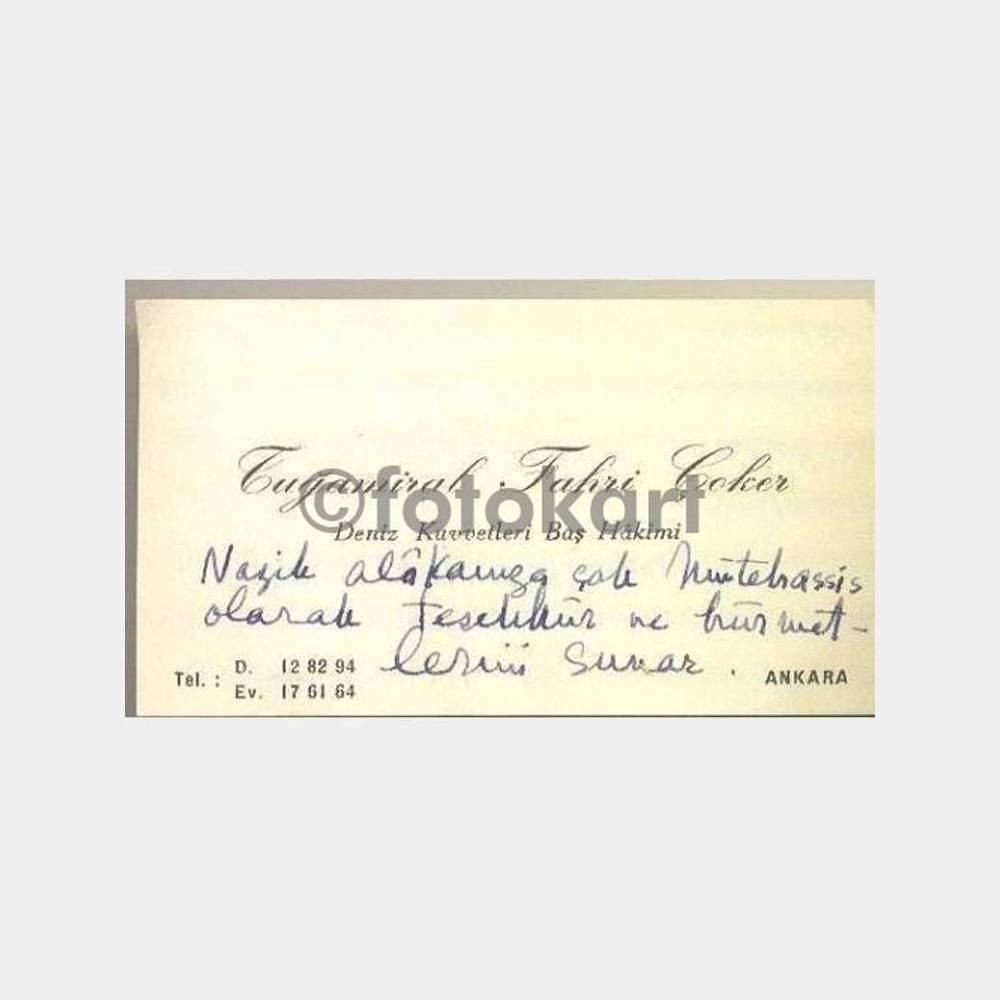 Tuğamiral Fahri Çoker
©fotokart
Deniz Kuvvetleri Baş Hâkimi
Nazik alâkanıza çok mütehassis
olarak teşekkür ve hürmet-
lerini sunar.
Tel. : D. 12 82 94
Ev. 17 61 64
ANKARA